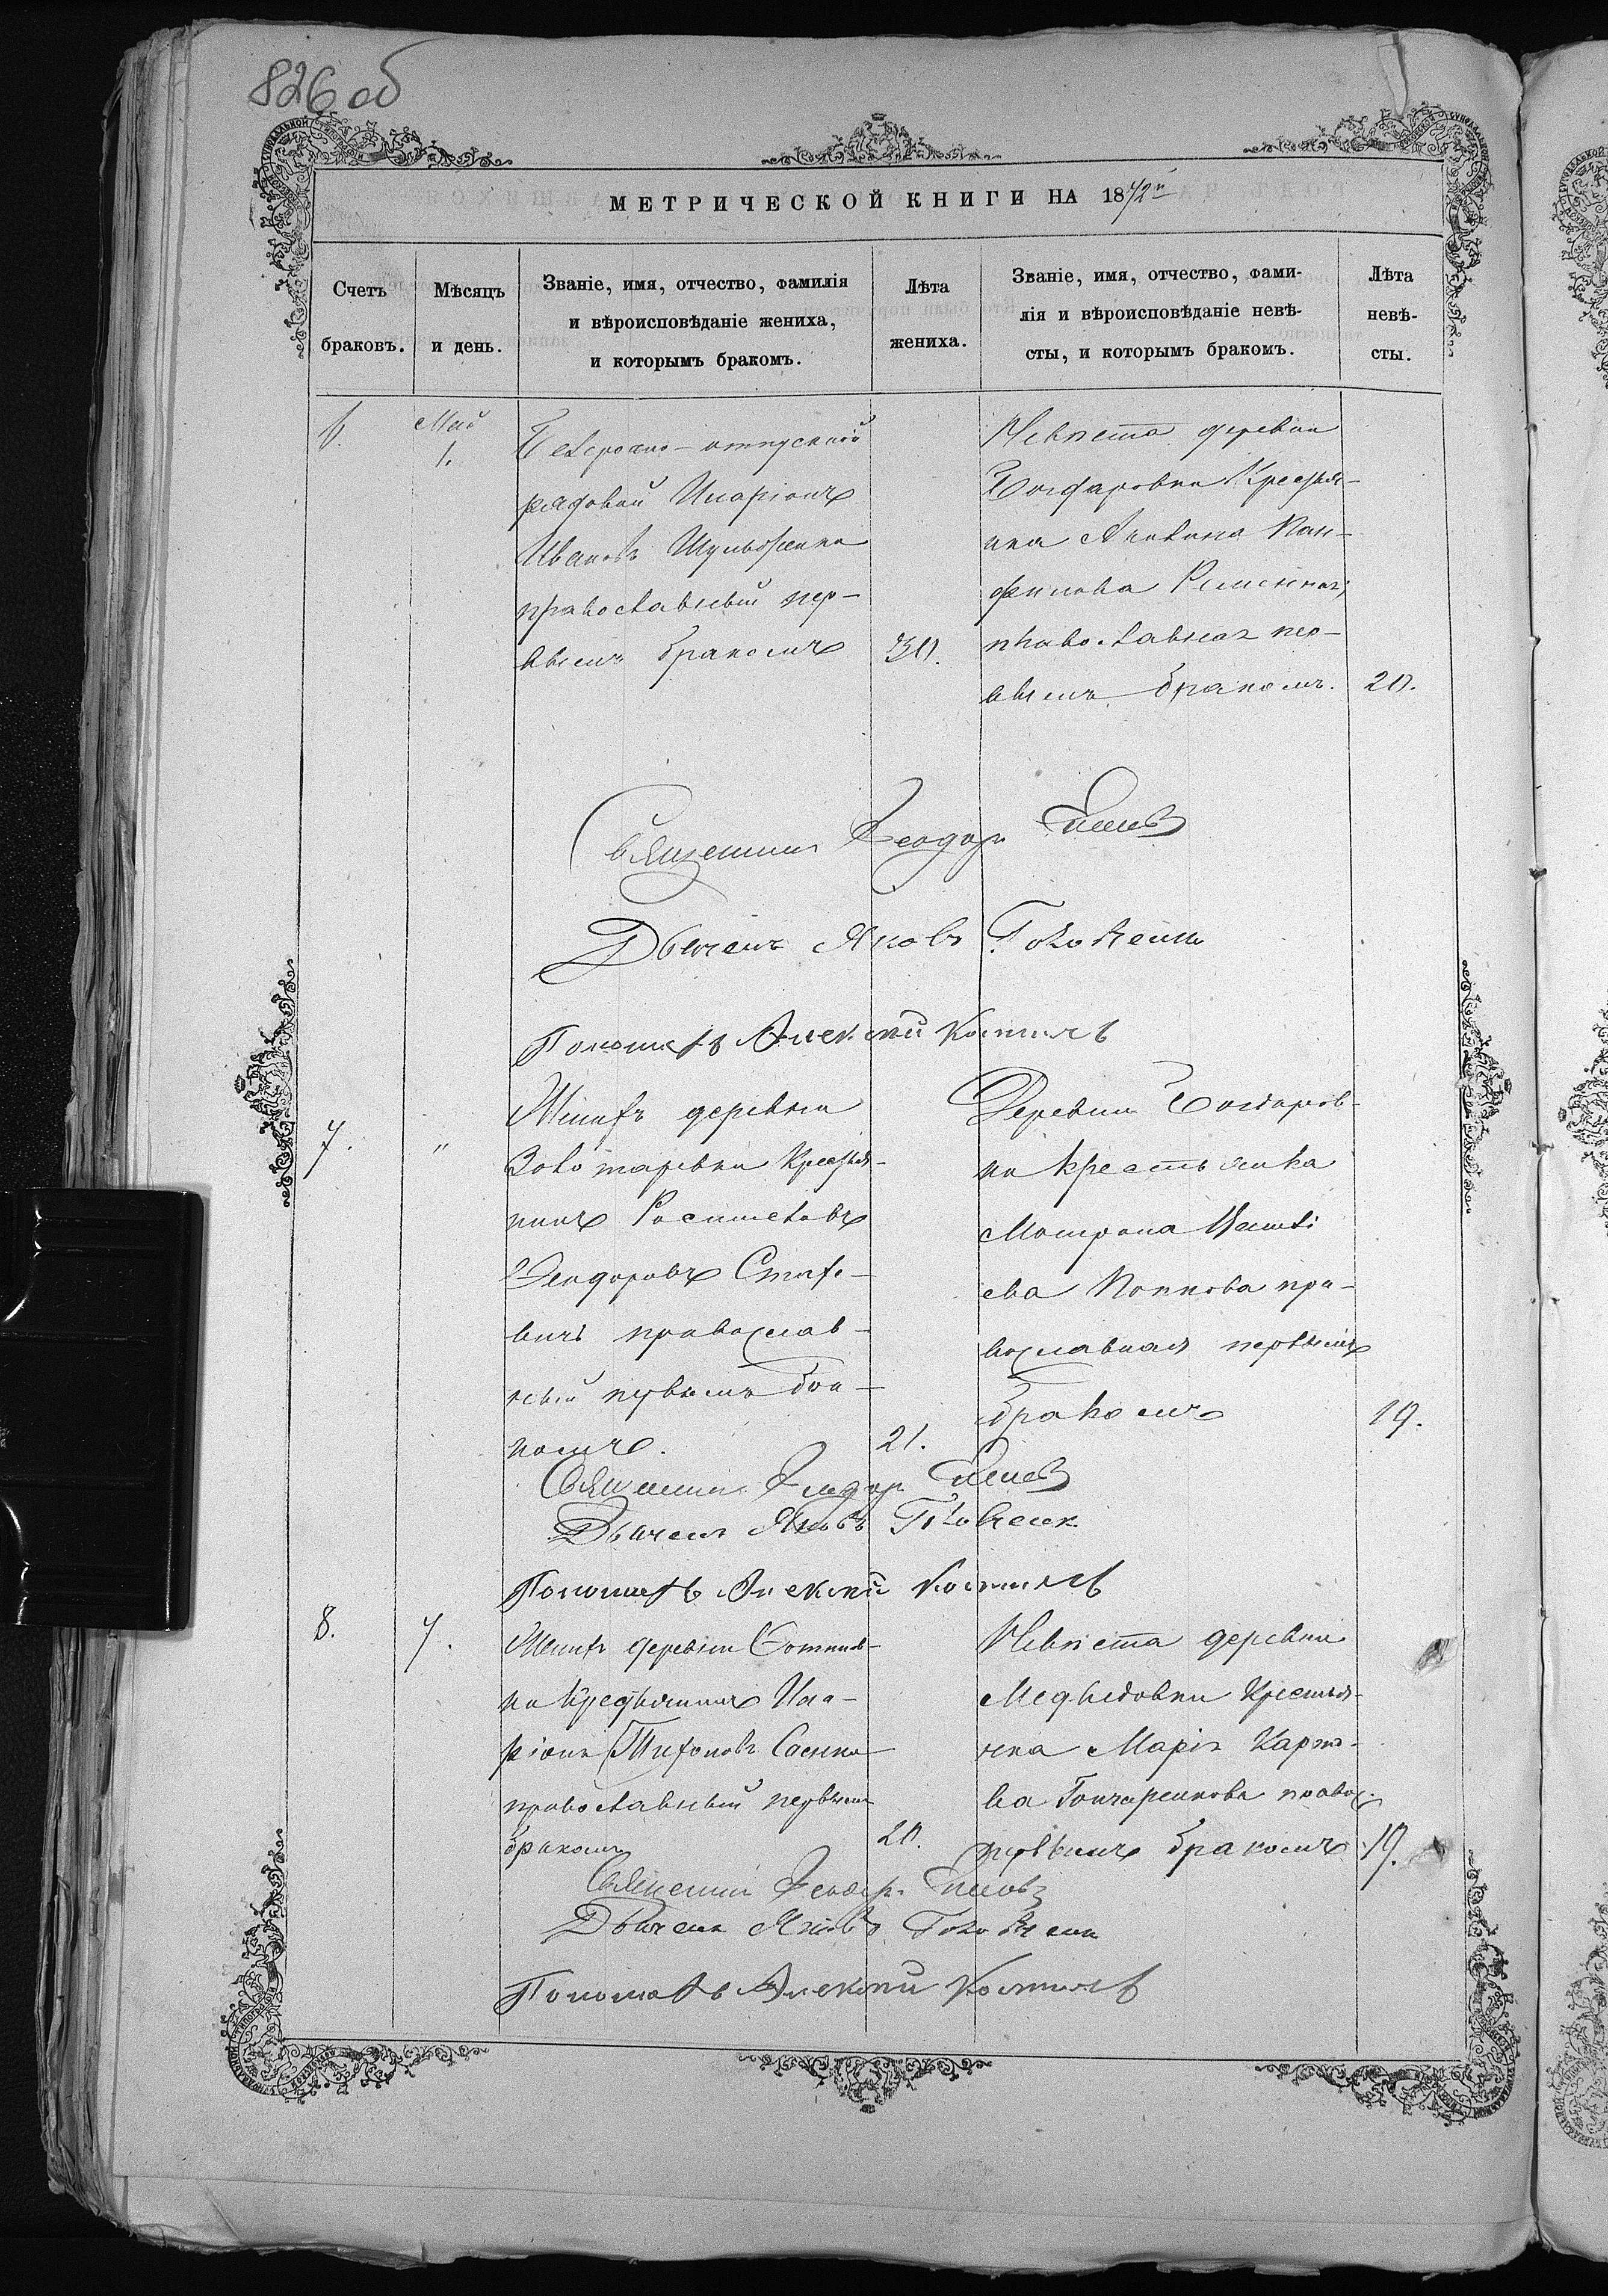 826 об
МЕТРИЧЕСКОЙ КНИГИ НА 1872й
Счетъ браковъ.
Мѣсяцъ и день.
Званіе, имя, отчество, фамилія
и вѣроисповѣданіе жениха,
и которымъ бракомъ.
Лѣта жениха.
Званіе, имя, отчество, фами-
лія и вѣроисповѣданіе невѣ-
сты, и которымъ бракомъ.
Лѣта невѣ-
сты.
6.
Май
1.
отпускной
рядовой Иларіонъ
Ивановъ
православный пер-
вымъ бракомъ
30.
Невѣста деревни
Бондаровки Крестья-
нка Акилина Пан-
филова
православная пер-
вымъ бракомъ.
20.
Священникъ Феодоръ
Дьячекъ Яковъ Головченко
Пономарь Алексѣй
7.
"
Женихъ деревни
Золотаревки Крестья-
нинъ
Феодоровъ
православ-
ный первымъ бра-
комъ.
21.
Деревни Бондаров-
ки Крестьянка
Матрона
ева Попкова пра-
вославная первымъ
бракомъ
19.
Священникъ Феодоръ
Дьячекъ Яковъ Головченк
Пономарь Алексѣй
8.
7.
Женихъ деревни
ки Крестьянинъ Ила-
ріонъ Тихоновъ Саенко
православный первымъ
бракомъ
20.
Невѣста деревни
Медведовки Крестья-
нка Марія Карпо-
ва Гончаренкова правос.
первымъ бракомъ
19.
Священникъ Феодоръ
Дьячекъ Яковъ Головченк
Пономарь Алексѣй